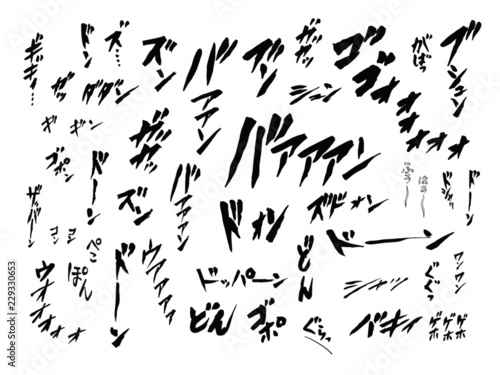 ギギィ…
ドン
ズ…
ズン
バァァン
ズン
ガガッ
ゴゴォォォォォ
がばっ
ブシュン
ガッ
ダダン
シーン
ギ
ギン
ガガガッ
バァァァン
ゴポン
ドーン
ズン
バァァァン
ふぅ〜
はぁ〜
ドジャッ
ドーン
ザッパーン
ヨロヨロ
ドォン
ズドドォン
ぺこ
ぽん
ドーン
ウァァァ
どん
ドーン
ウオォォォォ
ドッパーン
シャッ
ぐぐっ
ワンワン
どん
ゴポ
ぐらっ
バキィ
ゲホ
ゲホ
ゲホ
Adobe Stock | #229330653